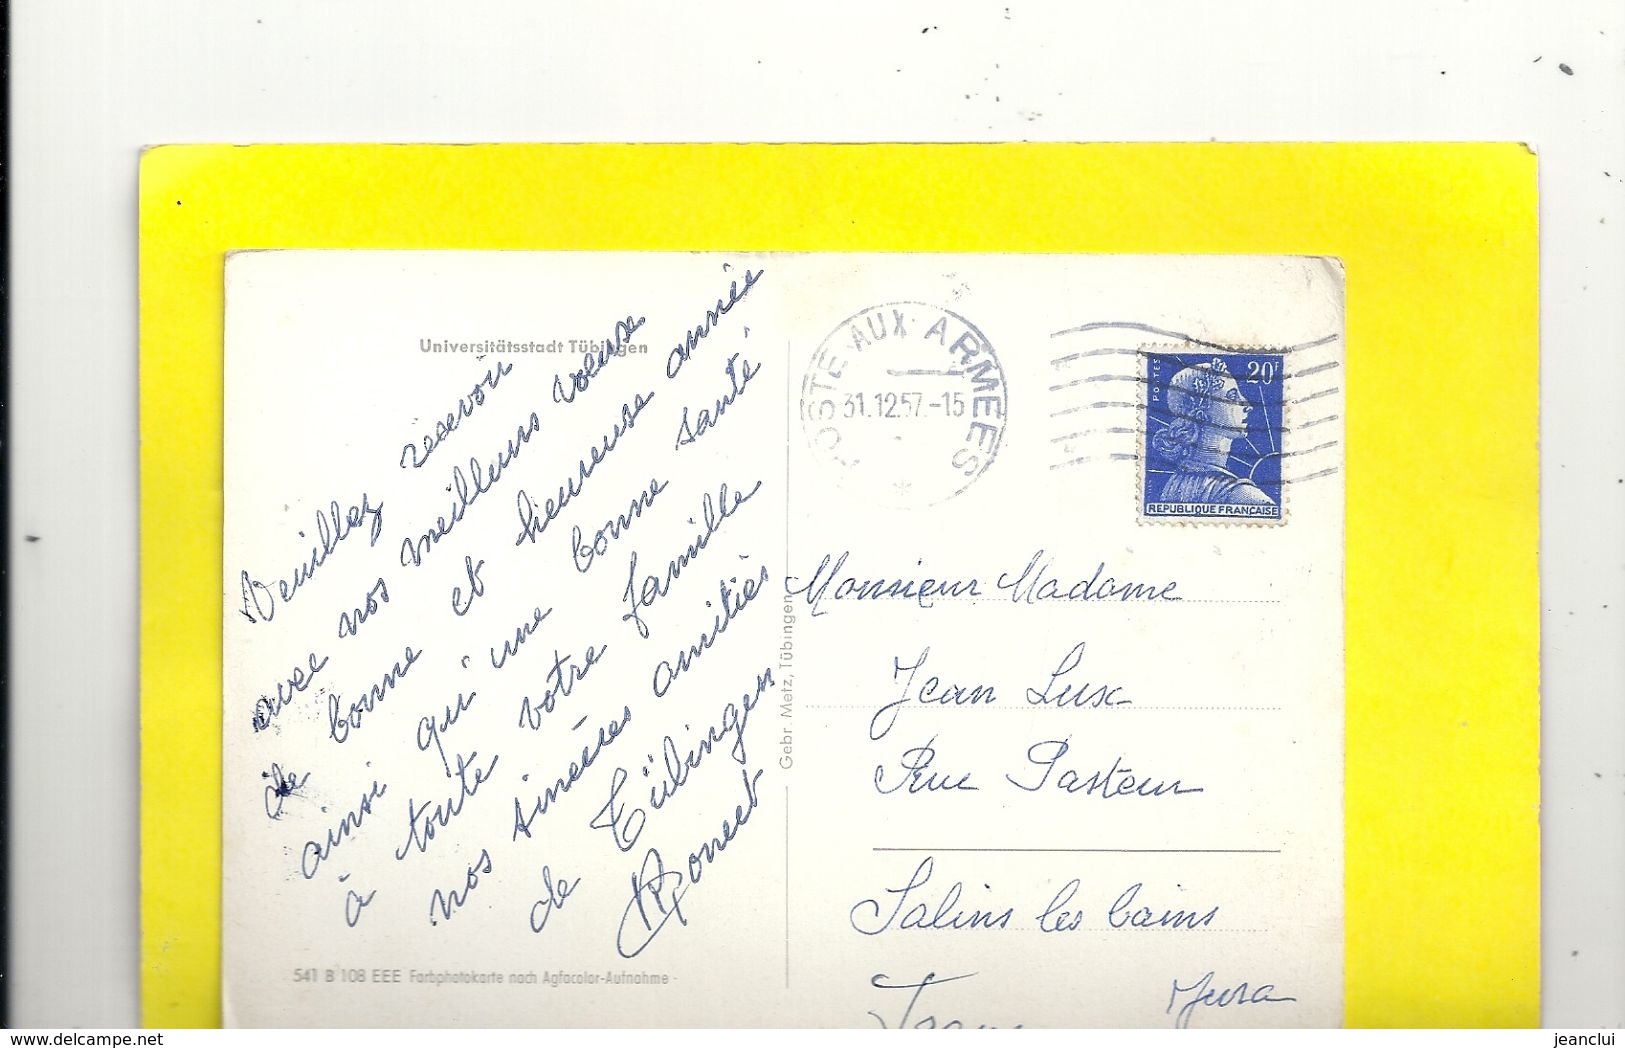 Universitätsstadt Tübingen
Veuillez recevoir
avec nos meilleurs voeux
de bonne et heureuse année
ainsi qu'une bonne santé
à toute votre famille
nos sincères amitiés
de Tübingen
POSTE AUX ARMEES
31.12.57.-15
POSTES
20F
REPUBLIQUE FRANÇAISE
Monsieur Madame
Jean Lux
Rue Pasteur
Salins les bains
Jura
Gebr Metz, Tübingen
541 B 108 EEE Farbphotokarte nach Agfacolor-Aufnahme
delcampe.net
jeanclui